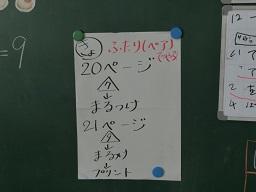 ふたり(ペア)
20ページ
7
↓
まるつけ
21ページ
↓
まるつけ
↓
プリント
=9
12